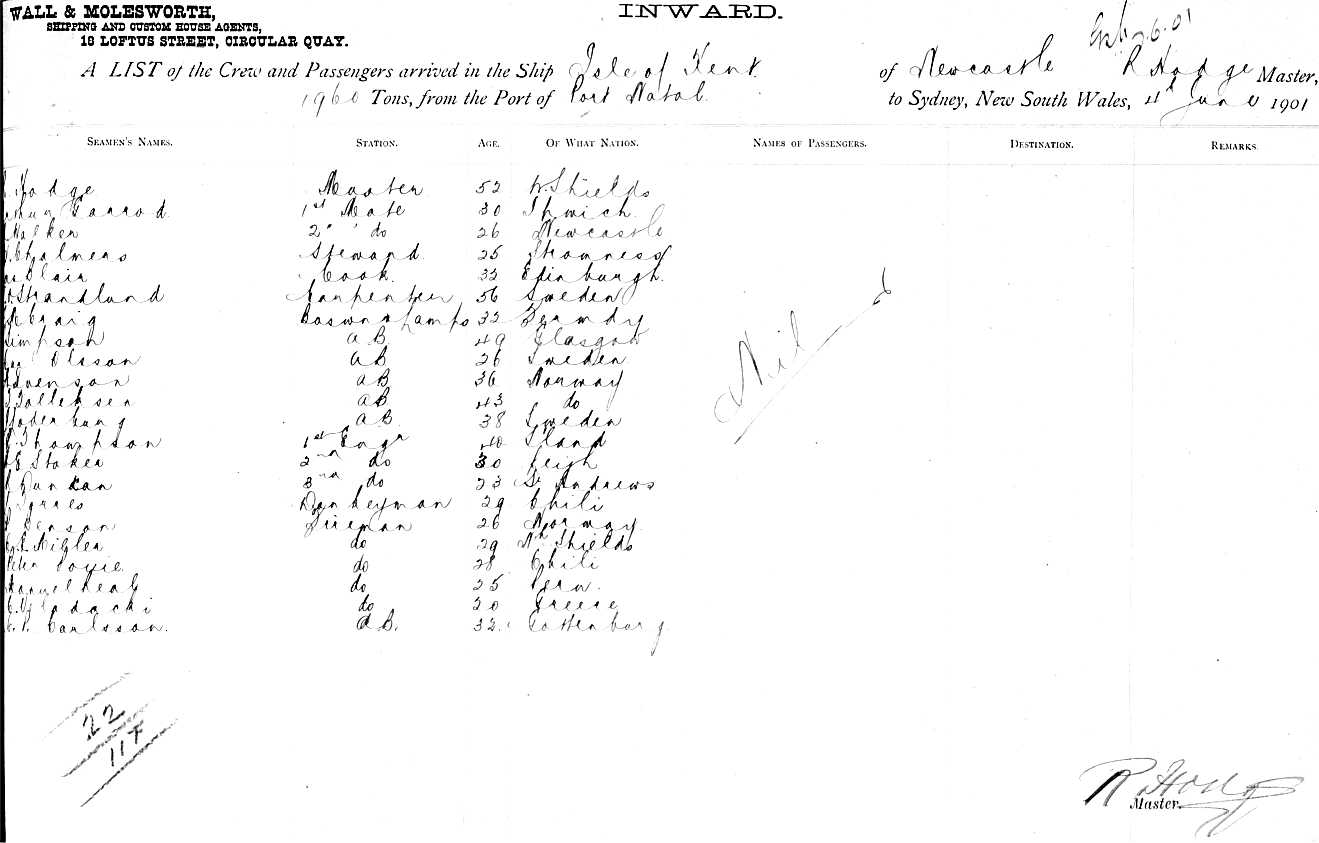 WALL & MOLESWORTH,
SHIPPING AND CUSTOM HOUSE AGENTS,
18 LOFTUS STREET, CIRCULAR QUAY.
INWARD.
6.01
A LIST of the Crew and Passengers arrived in the Ship Isle of Kent of Newcastle R Hodge Master,
1960 Tons, from the Port of Port Natal to Sydney, New South Wales, 4th June 1901
SEAMEN'S NAMES. STATION. AGE. OF WHAT NATION. NAMES OF PASSENGERS. DESTINATION. REMARKS
Hodge Master 52 N. Shields
Garrod 1st Mate 30 Ipwich
Walker 2" do 26 Newcastle
Chalmers Steward 25 Stromness
Blair Cook 32 Edinburgh
Strandlund Carpenter 56 Sweden
McCraig Boswn & Lamps 32
Simpson AB 49 Glasgow
Olsson AB 26 Sweden
Svenson AB 36 Norway
Tollefsen AB 43 do
Soderburg AB 38 Sweden
Thompson 1st Engr 40 Sland
Stoker 2nd do 30 Leigh
Duncan 3rd do 23 St Andrews
Torres Donkeyman 29 Chili
Benson Fireman 26 Norway
do 29 Nth Shields
do 28 Chili
do 25 Peru
do 20 Greese
Carlsson. AB. 32. Gottenburg
Nil
22
117
R Hodge
Master.